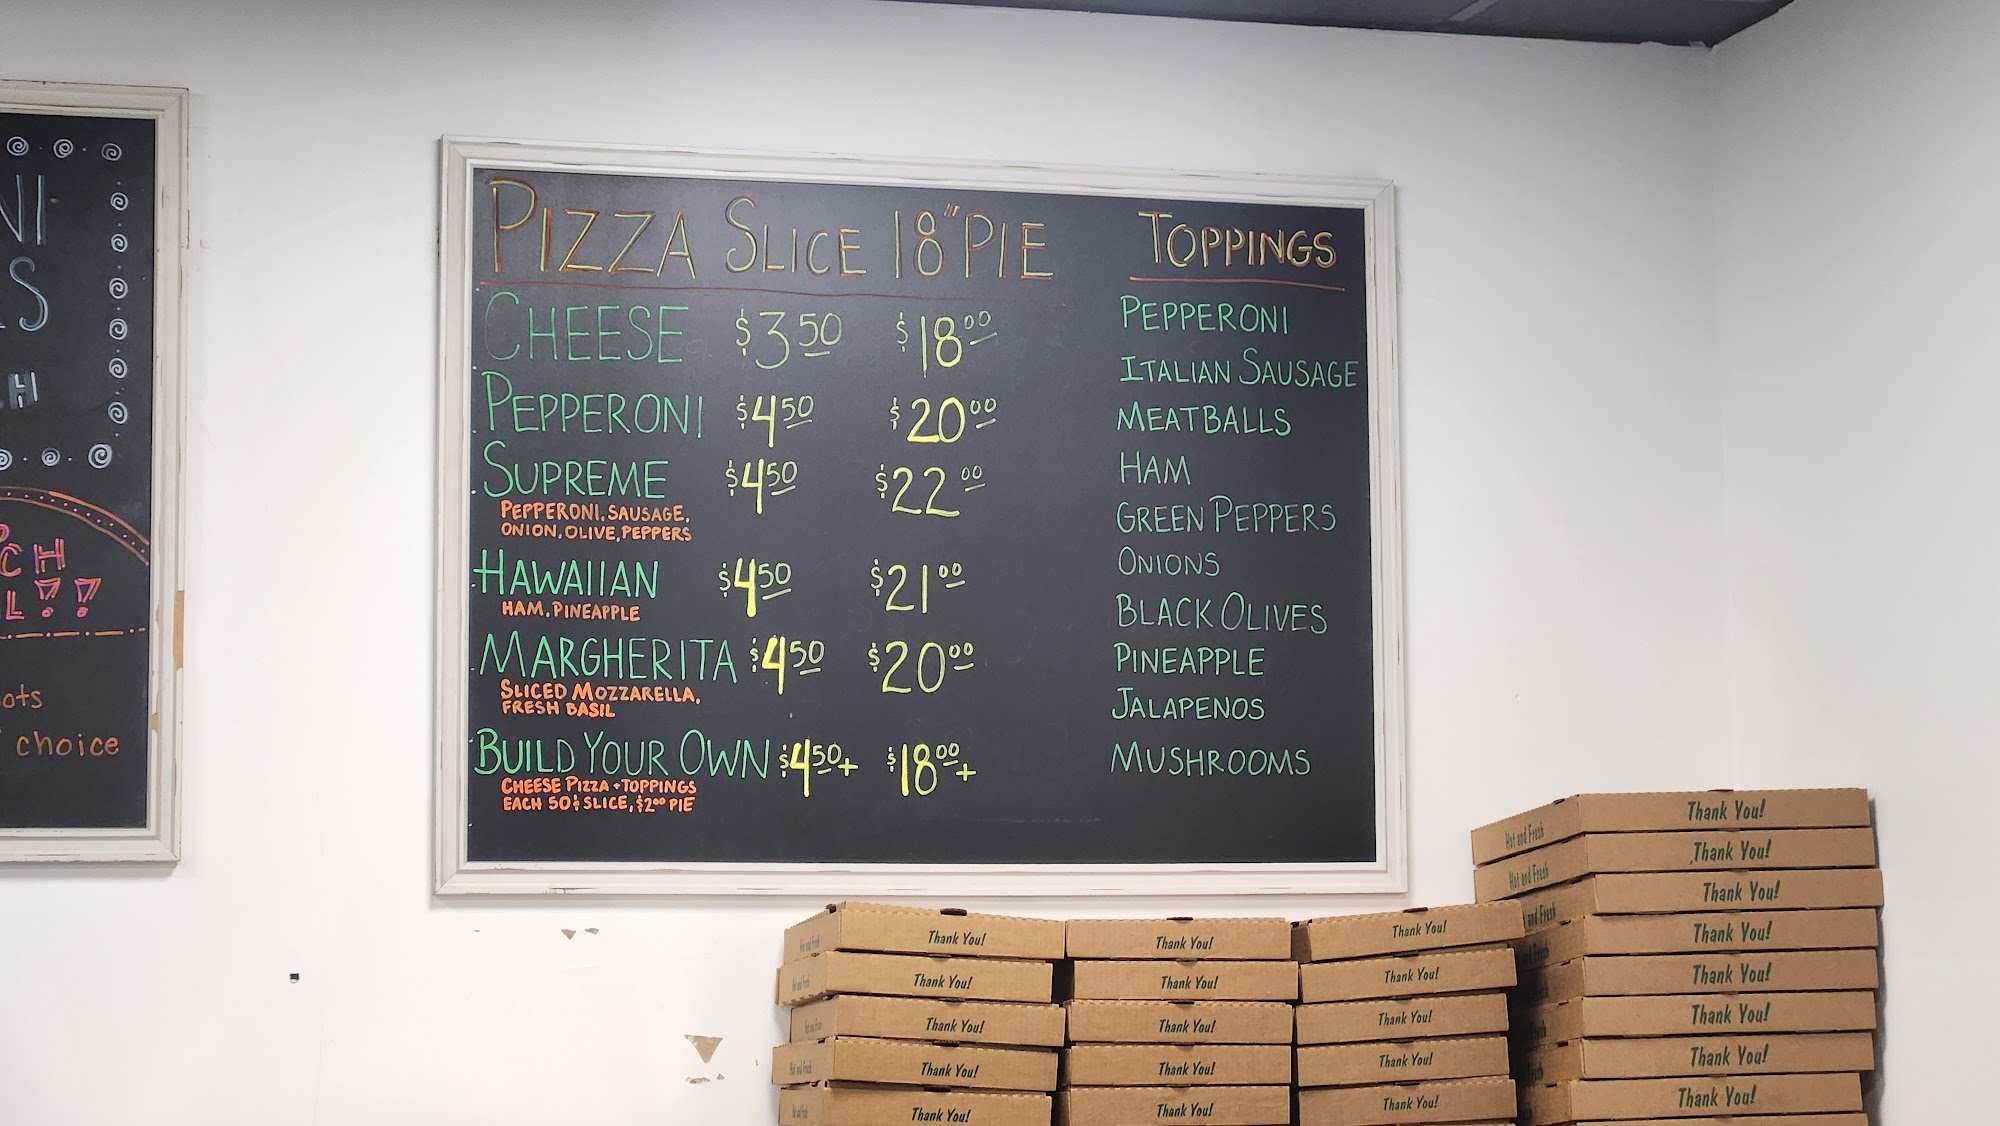 CH
choice
PIZZA SLICE 18" PIE
CHEESE $3.50 $18.00
PEPPERONI $4.50 $20.00
SUPREME $4.50 $22.00
PEPPERONI, SAUSAGE,
ONION, OLIVE, PEPPERS
HAWAIIAN $4.50 $21.00
HAM, PINEAPPLE
MARGHERITA $4.50 $20.00
SLICED MOZZARELLA,
FRESH BASIL
BUILD YOUR OWN $4.50+ $18.00+
CHEESE PIZZA + TOPPINGS
EACH 50¢ SLICE, $2.00 PIE
TOPPINGS
PEPPERONI
ITALIAN SAUSAGE
MEATBALLS
HAM
GREEN PEPPERS
ONIONS
BLACK OLIVES
PINEAPPLE
JALAPENOS
MUSHROOMS
Hot and Fresh Thank You!
Hot and Fresh Thank You!
and Fresh Thank You!
Thank You!
Thank You!
Thank You!
Thank You!
Thank You!
Hot and Fresh Thank You! Thank You! Thank You!
Hot and Fresh Thank You! Thank You! Thank You!
Hot and Fresh Thank You! Thank You! Thank You!
Hot and Fresh Thank You! Thank You! Thank You!
Hot and Fresh Thank You! Thank You! Thank You!